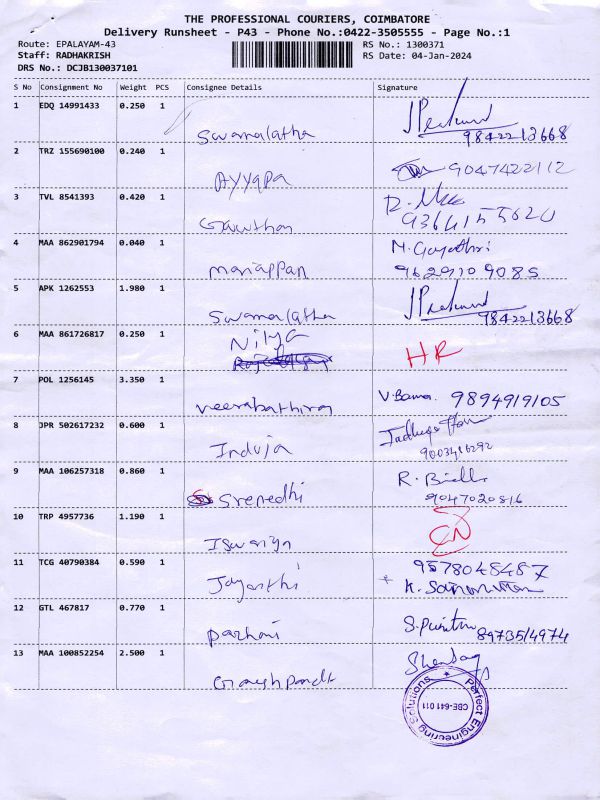 THE PROFESSIONAL COURIERS, COIMBATORE
Delivery Runsheet - P43 - Phone No.:0422-3505555 - Page No.:1
Route: EPALAYAM-43 RS No.: 1300371
Staff: RADHAKRISH RS Date: 04-Jan-2024
DRS No.: DCJB130037101
S No Consignment No Weight PCS Consignee Details Signature
1 EDQ 14991433 0.250 1
Swarnalatha 9842213668
2 TRZ 155690100 0.240 1
Ayyapa 9047422112
3 TVL 8541393 0.420 1
Gowtham
4 MAA 862901794 0.040 1 M. Gayathri
mariappan 9629109085
5 APK 1262553 1.980 1
Swarnalatha 9842213668
6 MAA 861726817 0.250 1 Nitya
HR
7 POL 1256145 3.350 1
Veerabathiran V Bama. 9894919105
8 JPR 502617232 0.600 1
Induja 9003416292
9 MAA 106257318 0.860 1 R.
Srenedhi 9047020816
10 TRP 4957736 1.190 1
Iswariya
11 TCG 40790384 0.590 1 9578048487
Jayanthi K.
12 GTL 467817 0.770 1
pazhani S.
13 MAA 100852254 2.500 1
Perfect Engineering Solutions
CBE-641 011